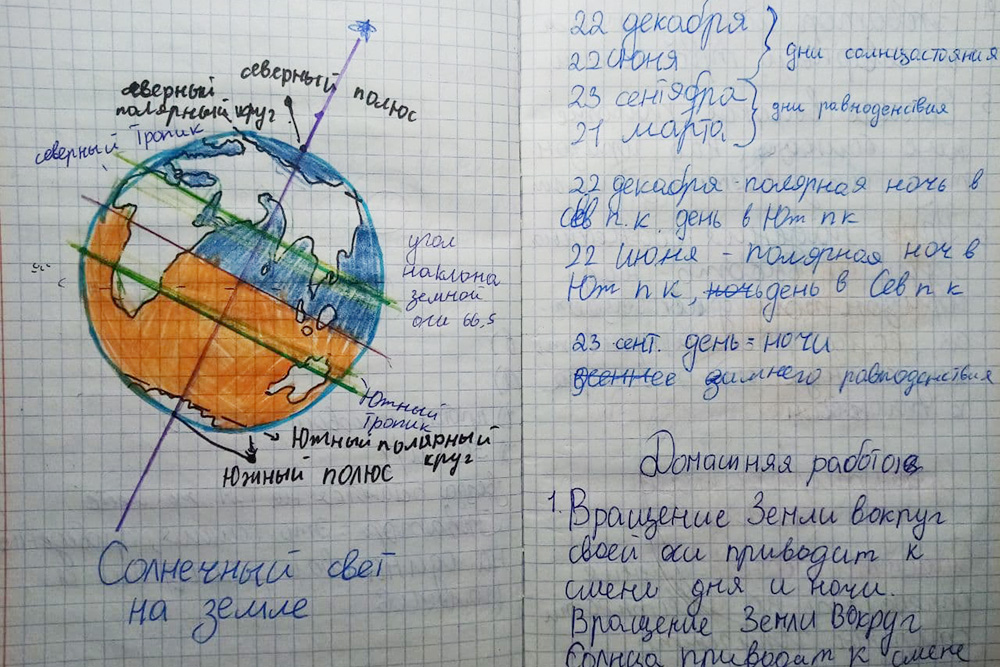 северный полюс
северный
полярный круг
северный Тропик
угол
наклона
земной
оси 66,5
Южный
Тропик
Южный полярный
круг
Южный полюс
Солнечный свет
на земле
22 декабря
22 июня
дни солнцастояния
23 сентября
21 марта
дни равноденствия
22 декабря - полярная ночь в
Сев п.к. день в Юж п к
22 июня - полярная ноч в
Юж п к, ночь день в Сев п к
23 сент. день = ночи
осеннее зимнего равноденствия
Домашняя работа
1. Вращение Земли вокруг
своей оси приводит к
смене дня и ночи.
Вращение Земли Вокруг
Солнца приводит к смене